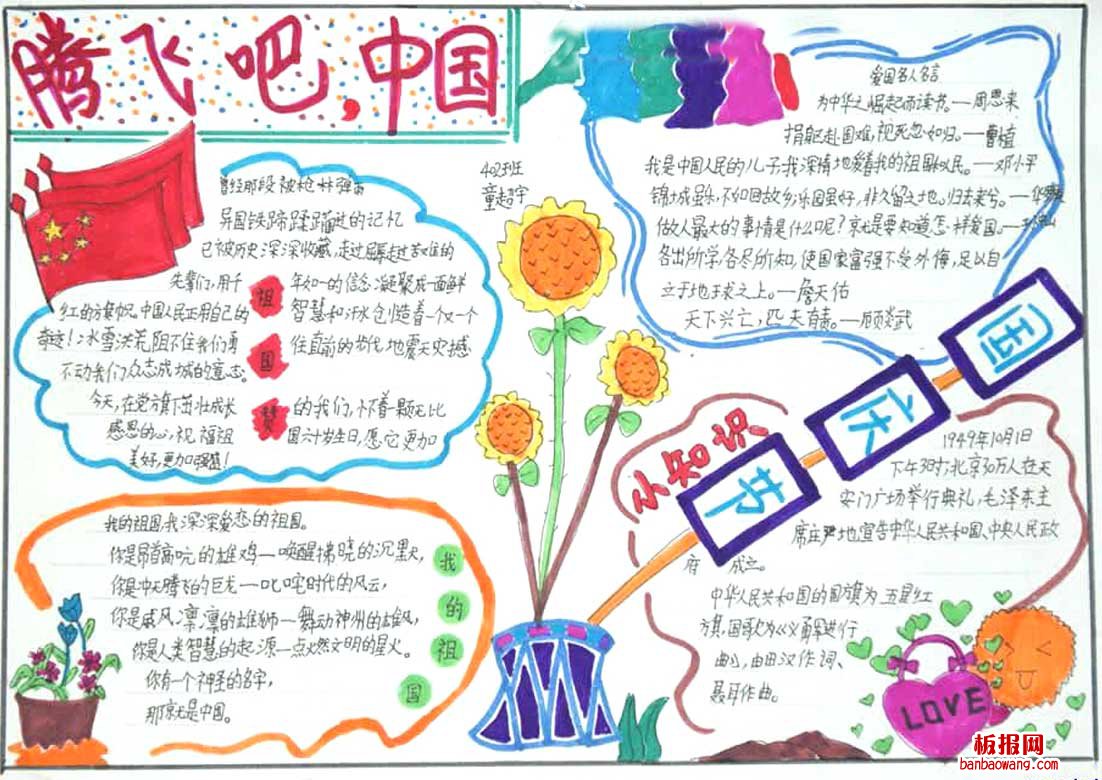 腾飞吧,中国
402班
童超宇
曾经那段被枪林弹雨
异国铁蹄蹂躏过的记忆
已被历史深深收藏,走过屈辱走过苦难的
先辈们,用千年如一的信念凝聚成一面鲜
红的旗帜。中国人民正用自己的智慧和汗水创造着一个又一个
奇迹!冰雪洪荒,阻不住我们勇往直前的步伐,地震天灾撼
不动我们众志成城的意志。
今天,在党旗下茁壮成长的我们,怀着一颗无比
感恩的心,祝福祖国六十岁生日,愿它更加
美好,更加强盛!
祖国赞
爱国名人名言
为中华之崛起而读书。—周恩来
捐躯赴国难,视死忽如归。—曹植
我是中国人民的儿子,我深情地爱着我的祖国和人民。—邓小平
锦城虽乐,不如回故乡;乐园虽好,非久留之地。归去来兮。—华
做人最大的事情是什么呢?就是要知道怎样爱国。—
各出所学,各尽所知,使国家富强不受外侮,足以自
立于地球之上。—詹天佑
天下兴亡,匹夫有责。—顾炎武
国庆节
小知识
1949年10月1日
下午3时,北京30万人在天
安门广场举行典礼,毛泽东主
席庄严地宣告中华人民共和国,中央人民政
府成立。
中华人民共和国的国旗为五星红
旗,国歌为《义勇军进行
曲》,由田汉作词、
聂耳作曲。
我的祖国,我深深爱恋的祖国。
你是昂首高吭的雄鸡—唤醒拂晓的沉黑,
你是冲天腾飞的巨龙—叱咤时代的风云,
你是威风凛凛的雄狮—舞动神州的雄风,
你是人类智慧的起源—点燃文明的星火。
你有一个神圣的名字,
那就是中国。
我的祖国
LOVE
板报网
banbaowang.com